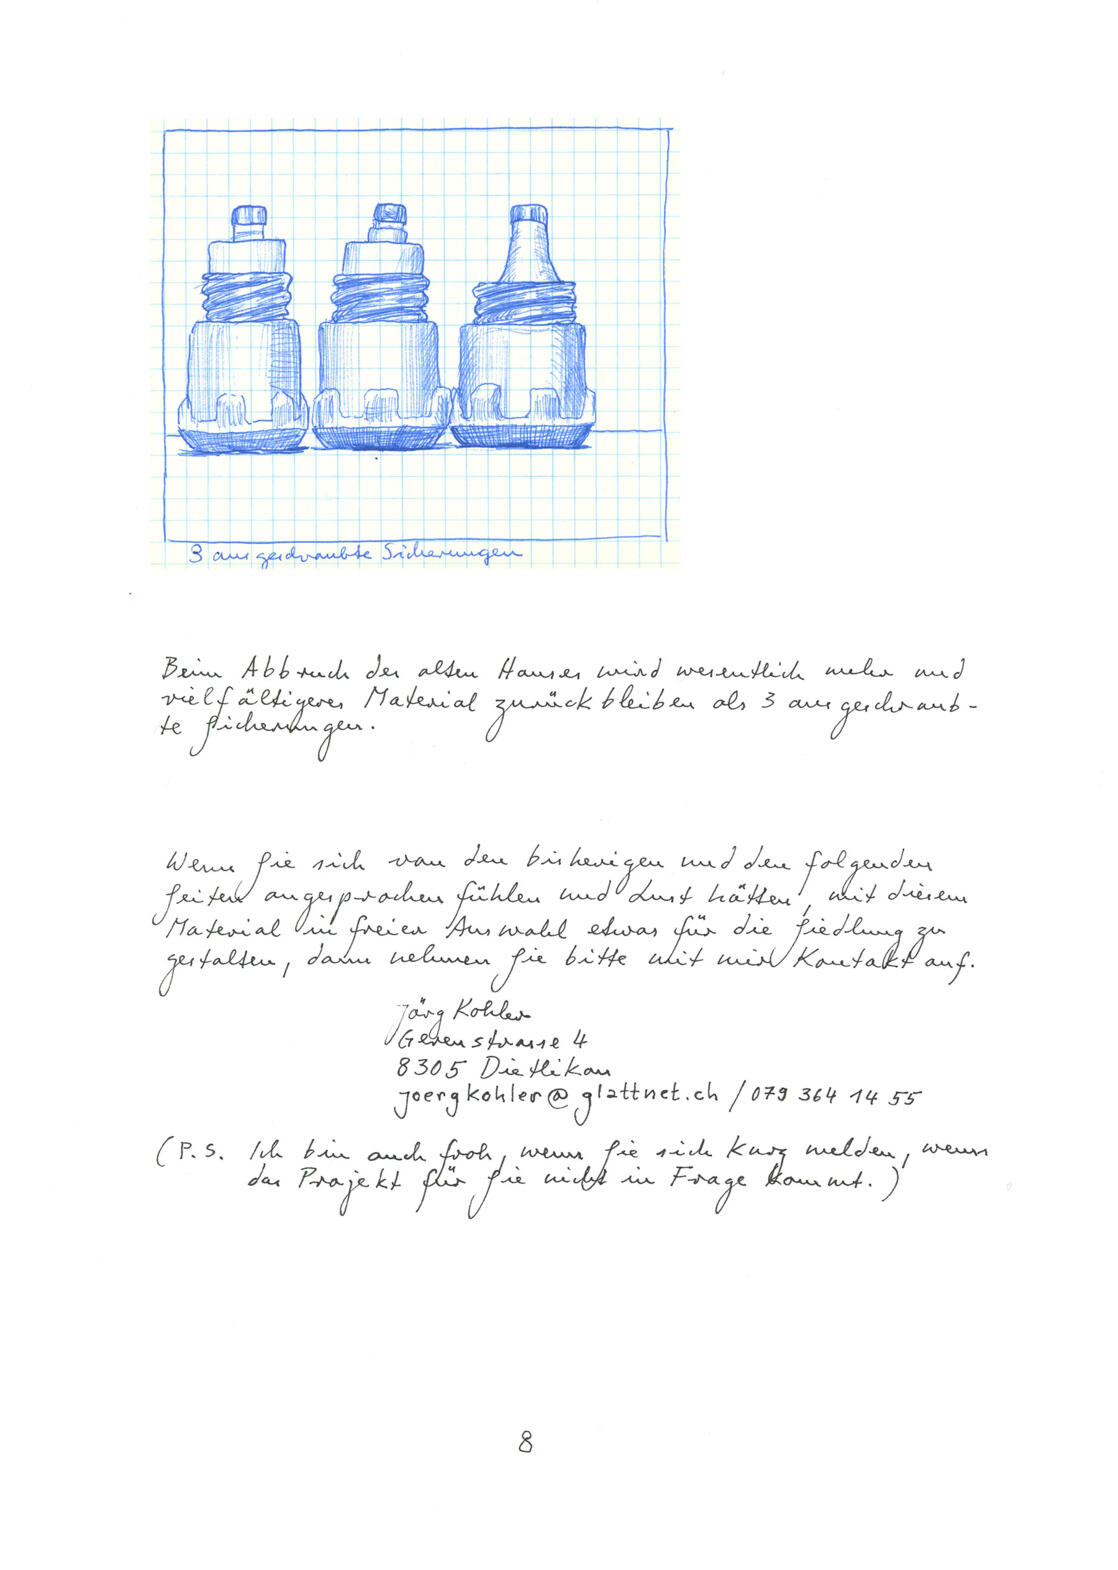 3 ausgeschraubte Sicherungen
Beim Abbruch des alten Hauses wird wesentlich mehr und
vielfältigeres Material zurückbleiben als 3 ausgeschraub-
te Sicherungen.
Wenn Sie sich von den bisherigen und den folgenden
Seiten angesprochen fühlen und Lust hätten, mit diesem
Material in freier Auswahl etwas für die Siedlung zu
gestalten, dann nehmen Sie bitte mit mir Kontakt auf.
Jörg Kohler
Gerenstrasse 4
8305 Dietlikon
joergkohler@glattnet.ch / 079 364 14 55
(P.S. Ich bin auch froh, wenn Sie sich kurz melden, wenn
das Projekt für Sie nicht in Frage kommt.)
8